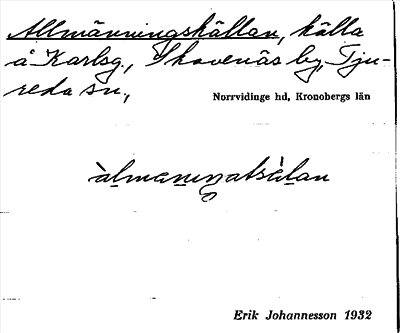 Allmänningskällan, källa
å Karlsg., Skavenäs by, Tju-
reda sn,
Norrvidinge hd, Kronobergs län
Erik Johannesson 1932